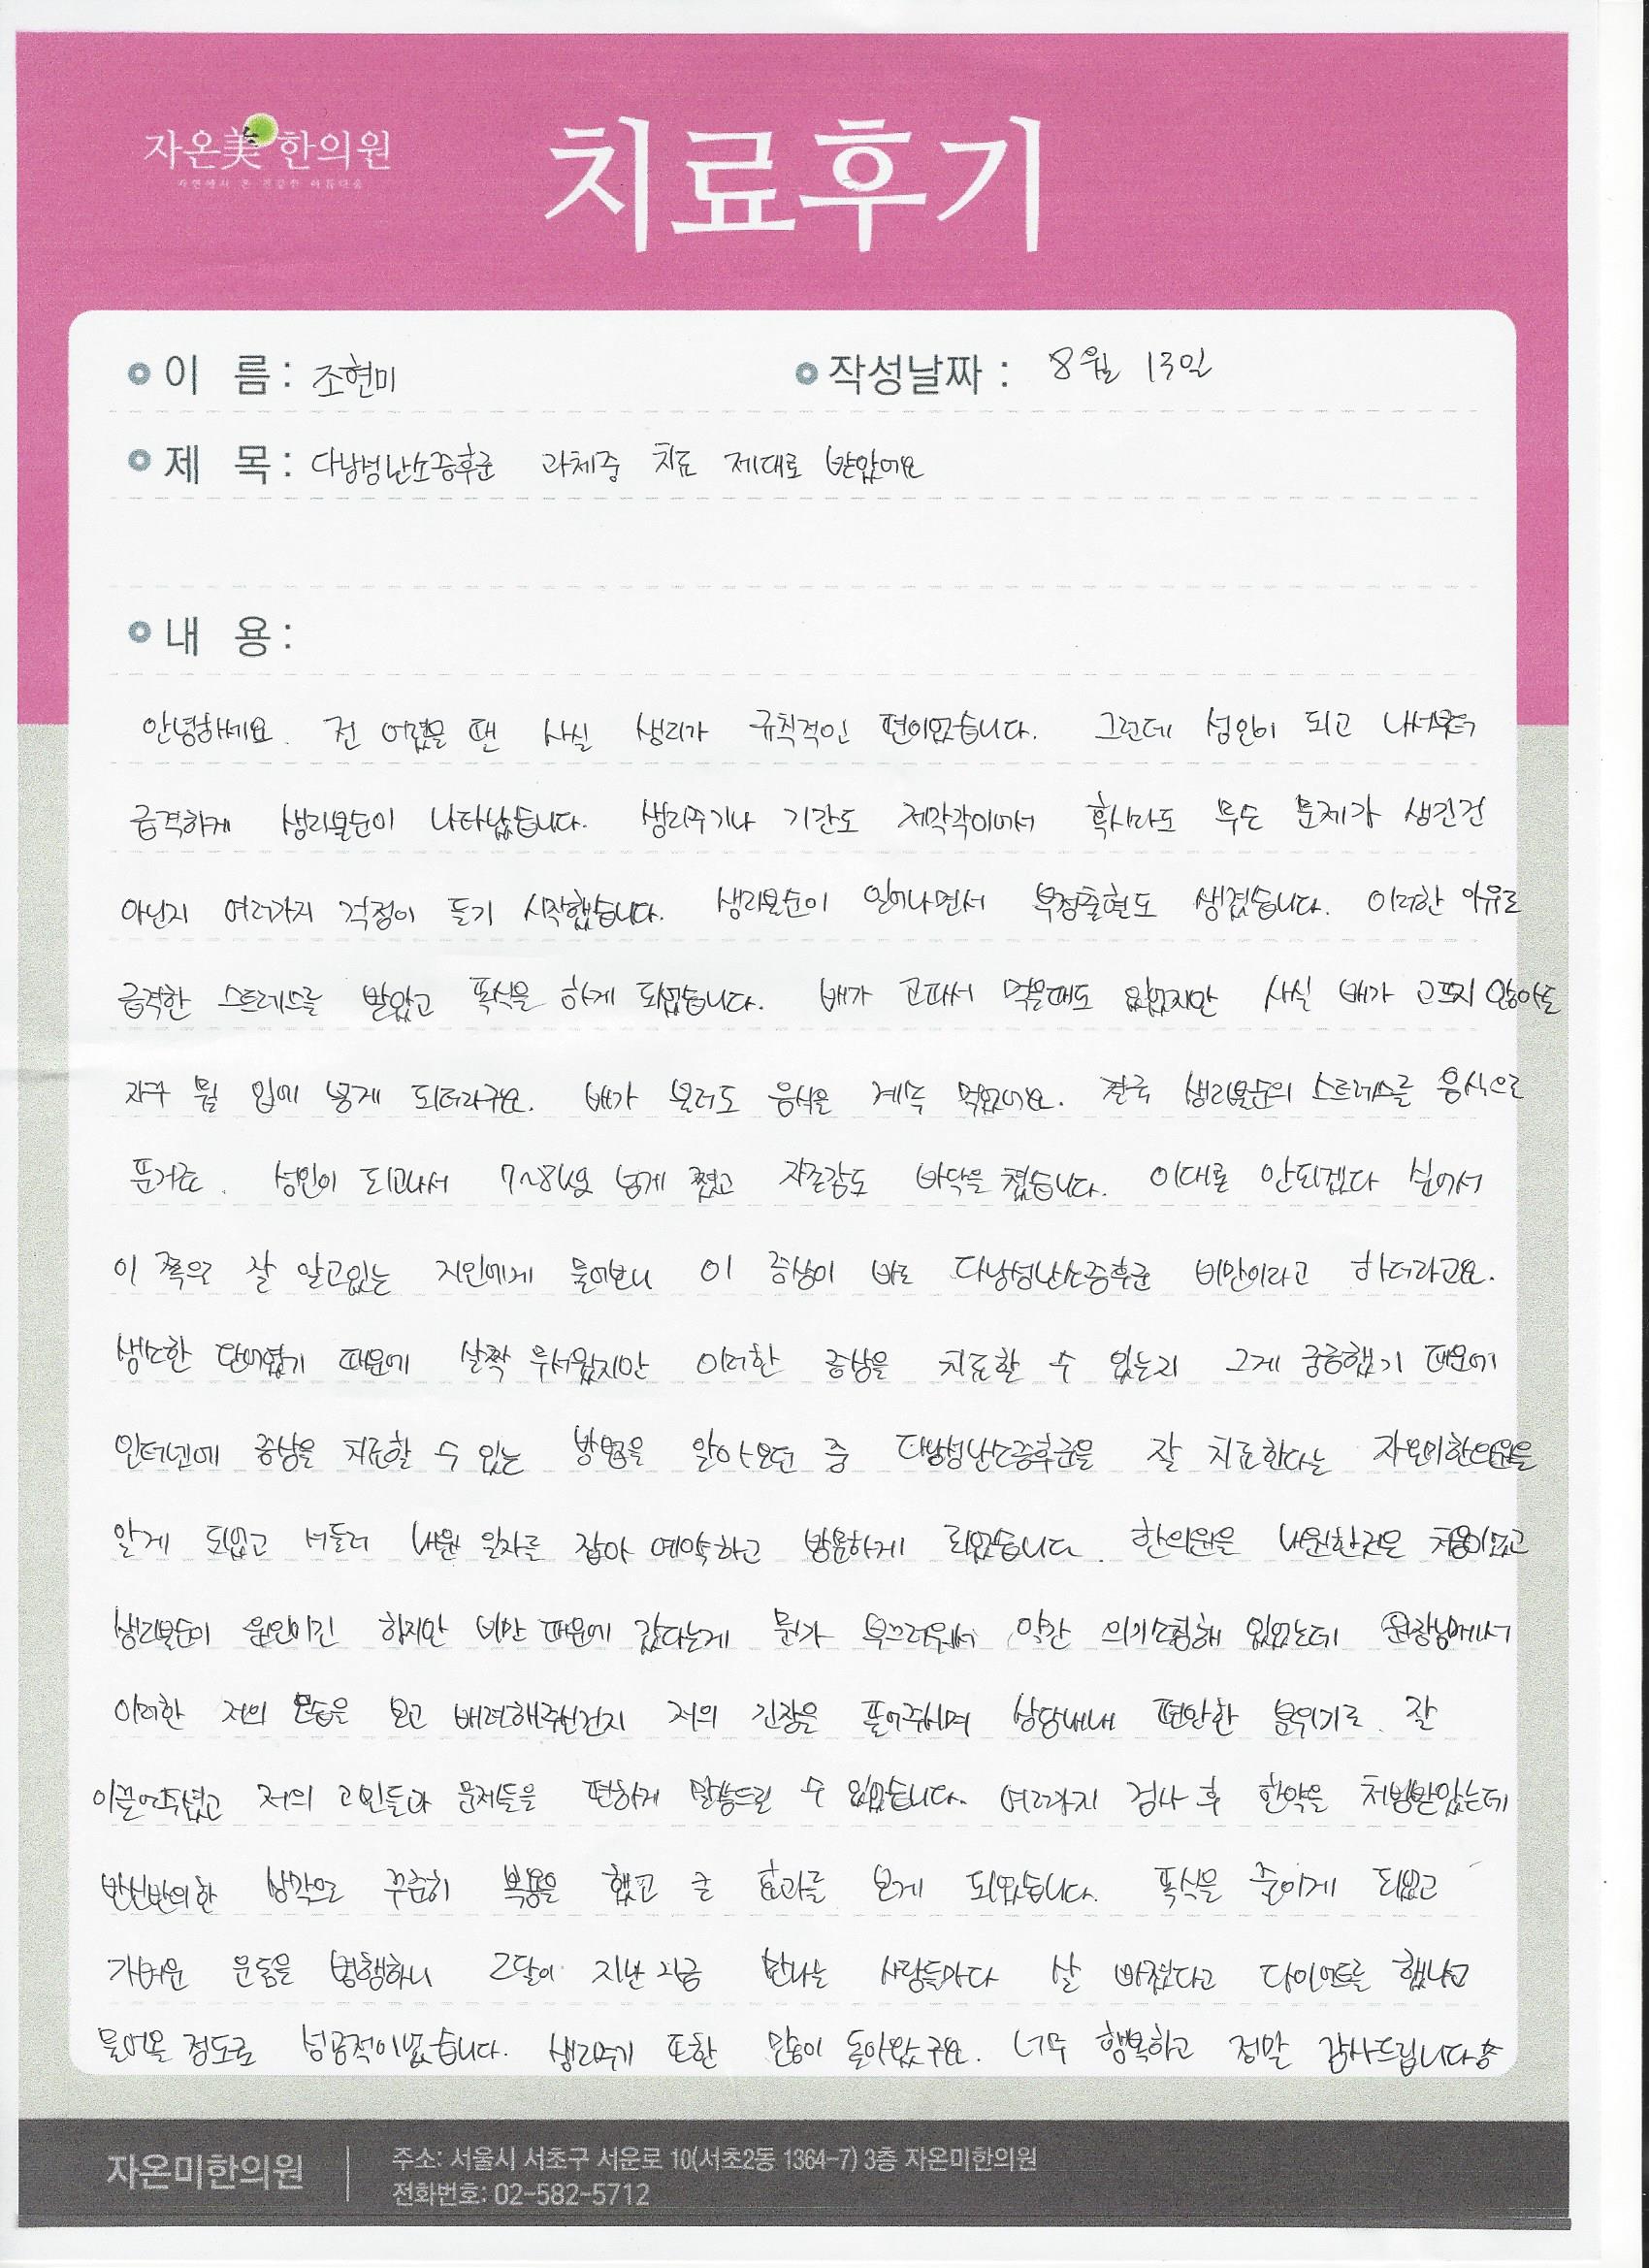 자온美한의원
자연에서 온 건강한 아름다움
치료후기
이 름 : 조현미
작성날짜 : 8월 13일
제 목 : 다낭성난소증후군 과체중 치료 제대로 받았어요
내 용 :
안녕하세요. 전 어렸을 땐 사실 생리가 규칙적인 편이었습니다. 그런데 성인이 되고 나서부터
급격하게 생리불순이 나타났습니다. 생리주기나 기간도 제각각이어서 혹시라도 무슨 문제가 생긴건
아닌지 여러가지 걱정이 들기 시작했습니다. 생리불순이 일어나면서 부정출혈도 생겼습니다. 이러한 이유로
급격한 스트레스를 받았고 폭식을 하게 되었습니다. 배가 고파서 먹을때도 있었지만 사실 배가 고프지 않아도
자꾸 뭘 입에 넣게 되더라구요. 배가 불러도 음식을 계속 먹었어요. 결국 생리불순의 스트레스를 음식으로
푼거죠. 성인이 되고나서 7~8kg 넘게 쪘고 자존감도 바닥을 쳤습니다. 이대론 안되겠다 싶어서
이 쪽으로 잘 알고있는 지인에게 물어보니 이 증상이 바로 다낭성난소증후군 비만이라고 하더라고요.
생소한 단어였기 때문에 살짝 무서웠지만 이러한 증상을 치료할 수 있는지 그게 궁금했기 때문에
인터넷에 증상을 치료할 수 있는 방법을 알아보던 중 다낭성난소증후군을 잘 치료한다는 자온미한의원을
알게 되었고 서둘러 내원 일자를 잡아 예약하고 방문하게 되었습니다. 한의원을 내원한것은 처음이었고
생리불순이 원인이긴 하지만 비만 때문에 갔다는게 뭔가 부끄러워서 약간 의기소침해 있었는데 원장님께서
이러한 저의 모습을 보고 배려해주신건지 저의 긴장을 풀어주시며 상담내내 편안한 분위기로 잘
이끌어주셨고 저의 고민들과 문제들을 편하게 말씀드릴 수 있었습니다. 여러가지 검사 후 한약을 처방받았는데
반신반의한 생각으로 꾸준히 복용을 했고 큰 효과를 보게 되었습니다. 폭식을 줄이게 되었고
가벼운 운동을 병행하니 2달이 지난 지금 만나는 사람들마다 살 빠졌다고 다이어트를 했냐고
물어올 정도로 성공적이었습니다. 생리주기 또한 많이 돌아왔구요. 너무 행복하고 정말 감사드립니다
자온미한의원
주소: 서울시 서초구 서운로 10(서초2동 1364-7) 3층 자온미한의원
전화번호: 02-582-5712